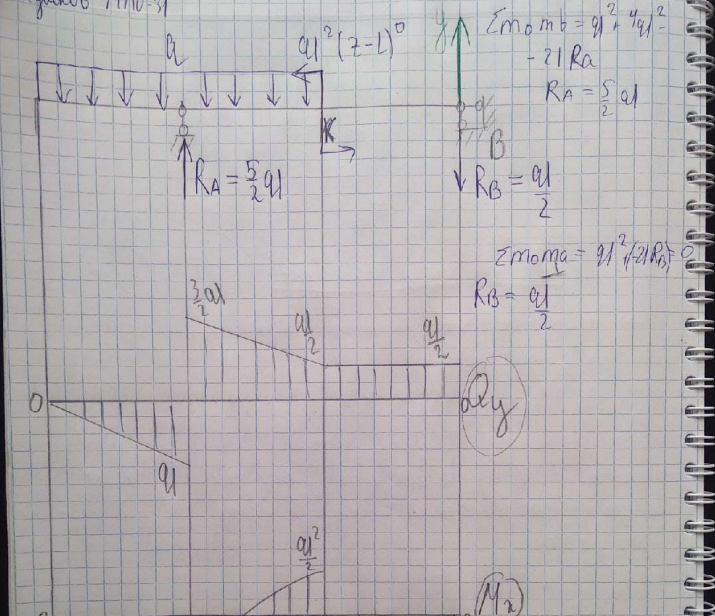 q
ql²(z-l)⁰
y
Σmomb = ql² + 4ql² -
- 2lRa
R_A = 5/2 ql
K
B
R_A = 5/2 ql
R_B = ql/2
Σmoma = ql² + (-2lR_B) = 0
R_B = ql/2
3/2 ql
ql/2
ql/2
0
Qy
ql
ql²/2
Mx